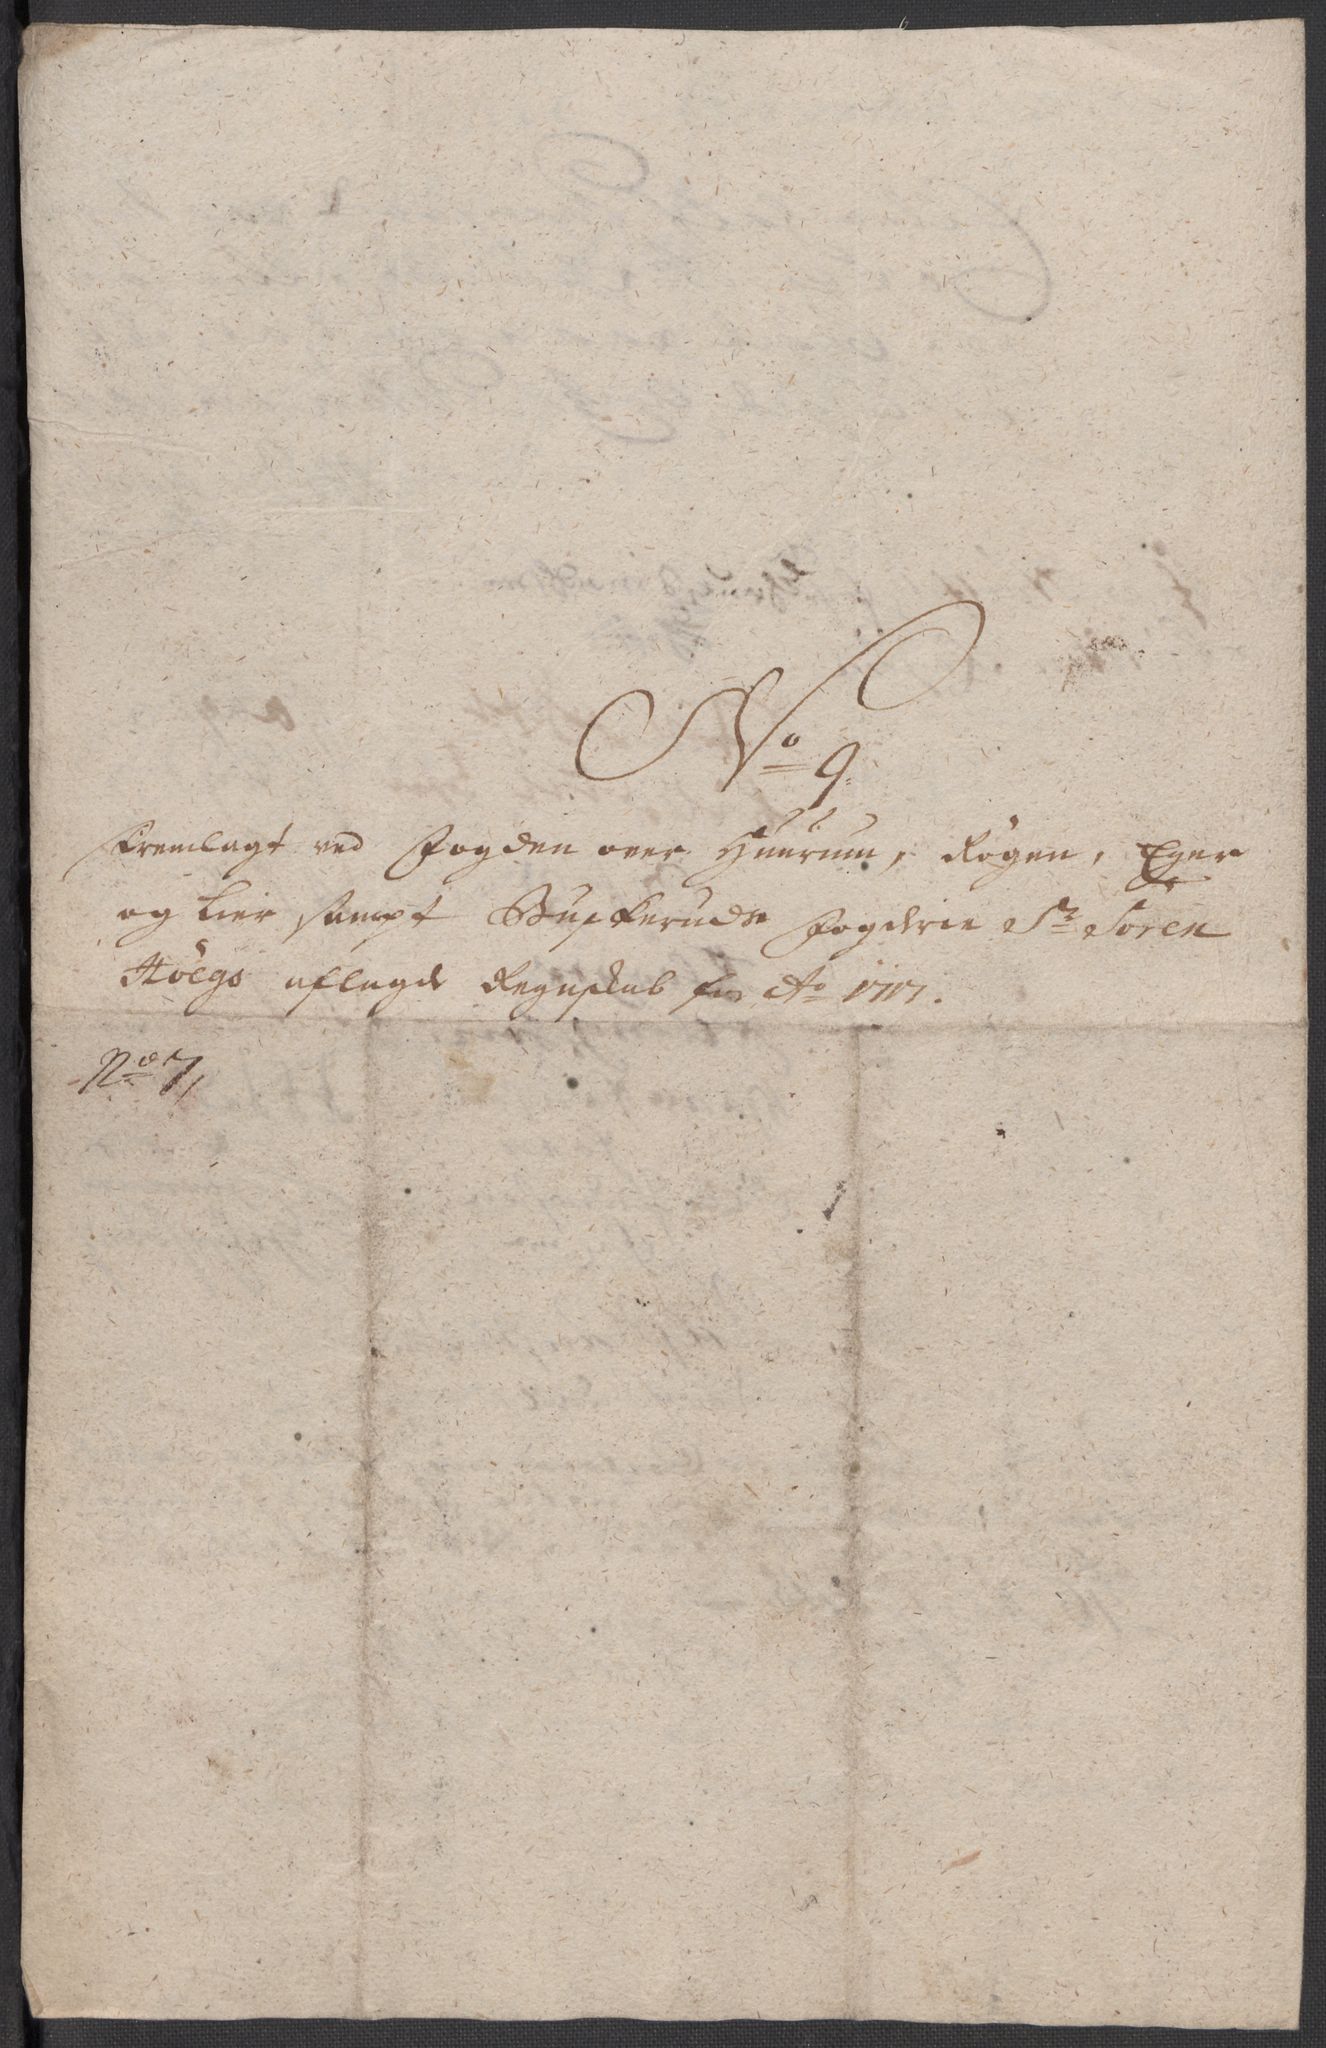 No 9.
Fremlagt ved Fogden over Huurum, Røgen, Eger
og Lier sampt Buskeruds Fogderie Sr Søren
Høegs aflagde Regnskab for Ao 1717.
No 7/